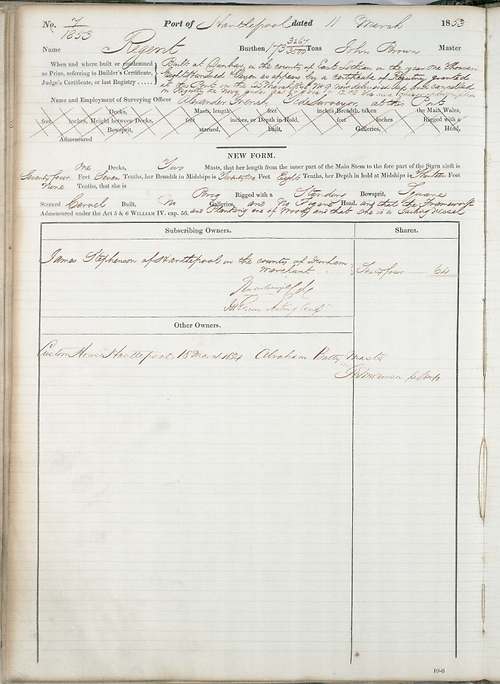 No. 7/1853 Port of Hartlepool dated 11 March 1853
Name Regent Burthen 173 Tons John Brown Master
When and where built or condemned
as Prize, referring to Builder's Certificate,
Judge's Certificate, or last Registry
Built at Dunbar in the county of East Lothian in the year one Thousand
Eight Hundred as appears by a certificate of Registry granted
at Port in the
Name and Employment of Surveying Officer Alexander Tide Surveyor, at this Port
Decks, Masts, length, feet inches Breadth, taken the Main Wales,
feet inches, Height between Decks, feet inches, or Depth in Hold, feet inches Rigged with a
Bowsprit, sterned, Built, Galleries, Head,
Admeasured
NEW FORM.
One Decks, Two Masts, that her length from the inner part of the Main Stem to the fore part of the Stern aloft is
Seventy four Feet Seven Tenths, her Breadth in Midships is Feet Eight Tenths, her Depth in hold at Midships is Feet
None Tenths, that she is Brig Rigged with a Standing Bowsprit, Square
Sterned Carvel Built, No Galleries, and No Figure Head, and that the Framework
Admeasured under the Act 5 & 6 WILLIAM IV. cap. 56. and Planking are of Wood, and that she is a Sailing Vessel
Subscribing Owners. Shares.
James Stephenson of Hartlepool in the county of Durham
Merchant Sixty four 64
Other Owners.
Custom House Hartlepool 15 March 1854 Abraham Batty Master
10-6